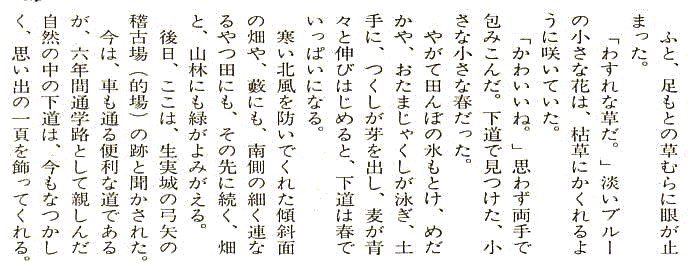 ふと、足もとの草むらに眼が止
まった。
「わすれな草だ。」淡いブルー
の小さな花は、枯草にかくれるよ
うに咲いていた。
「かわいいね。」思わず両手で
包みこんだ。下道で見つけた、小
さな小さな春だった。
やがて田んぼの氷もとけ、めだ
かや、おたまじゃくしが泳ぎ、土
手に、つくしが芽を出し、麦が青
々と伸びはじめると、下道は春で
いっぱいになる。
寒い北風を防いでくれた傾斜面
の畑や、藪にも、南側の細く連な
るやつ田にも、その先に続く、畑
と、山林にも緑がよみがえる。
後日、ここは、生実城の弓矢の
稽古場（的場）の跡と聞かされた。
今は、車も通る便利な道である
が、六年間通学路として親しんだ
自然の中の下道は、今もなつかし
く、思い出の一頁を飾ってくれる。